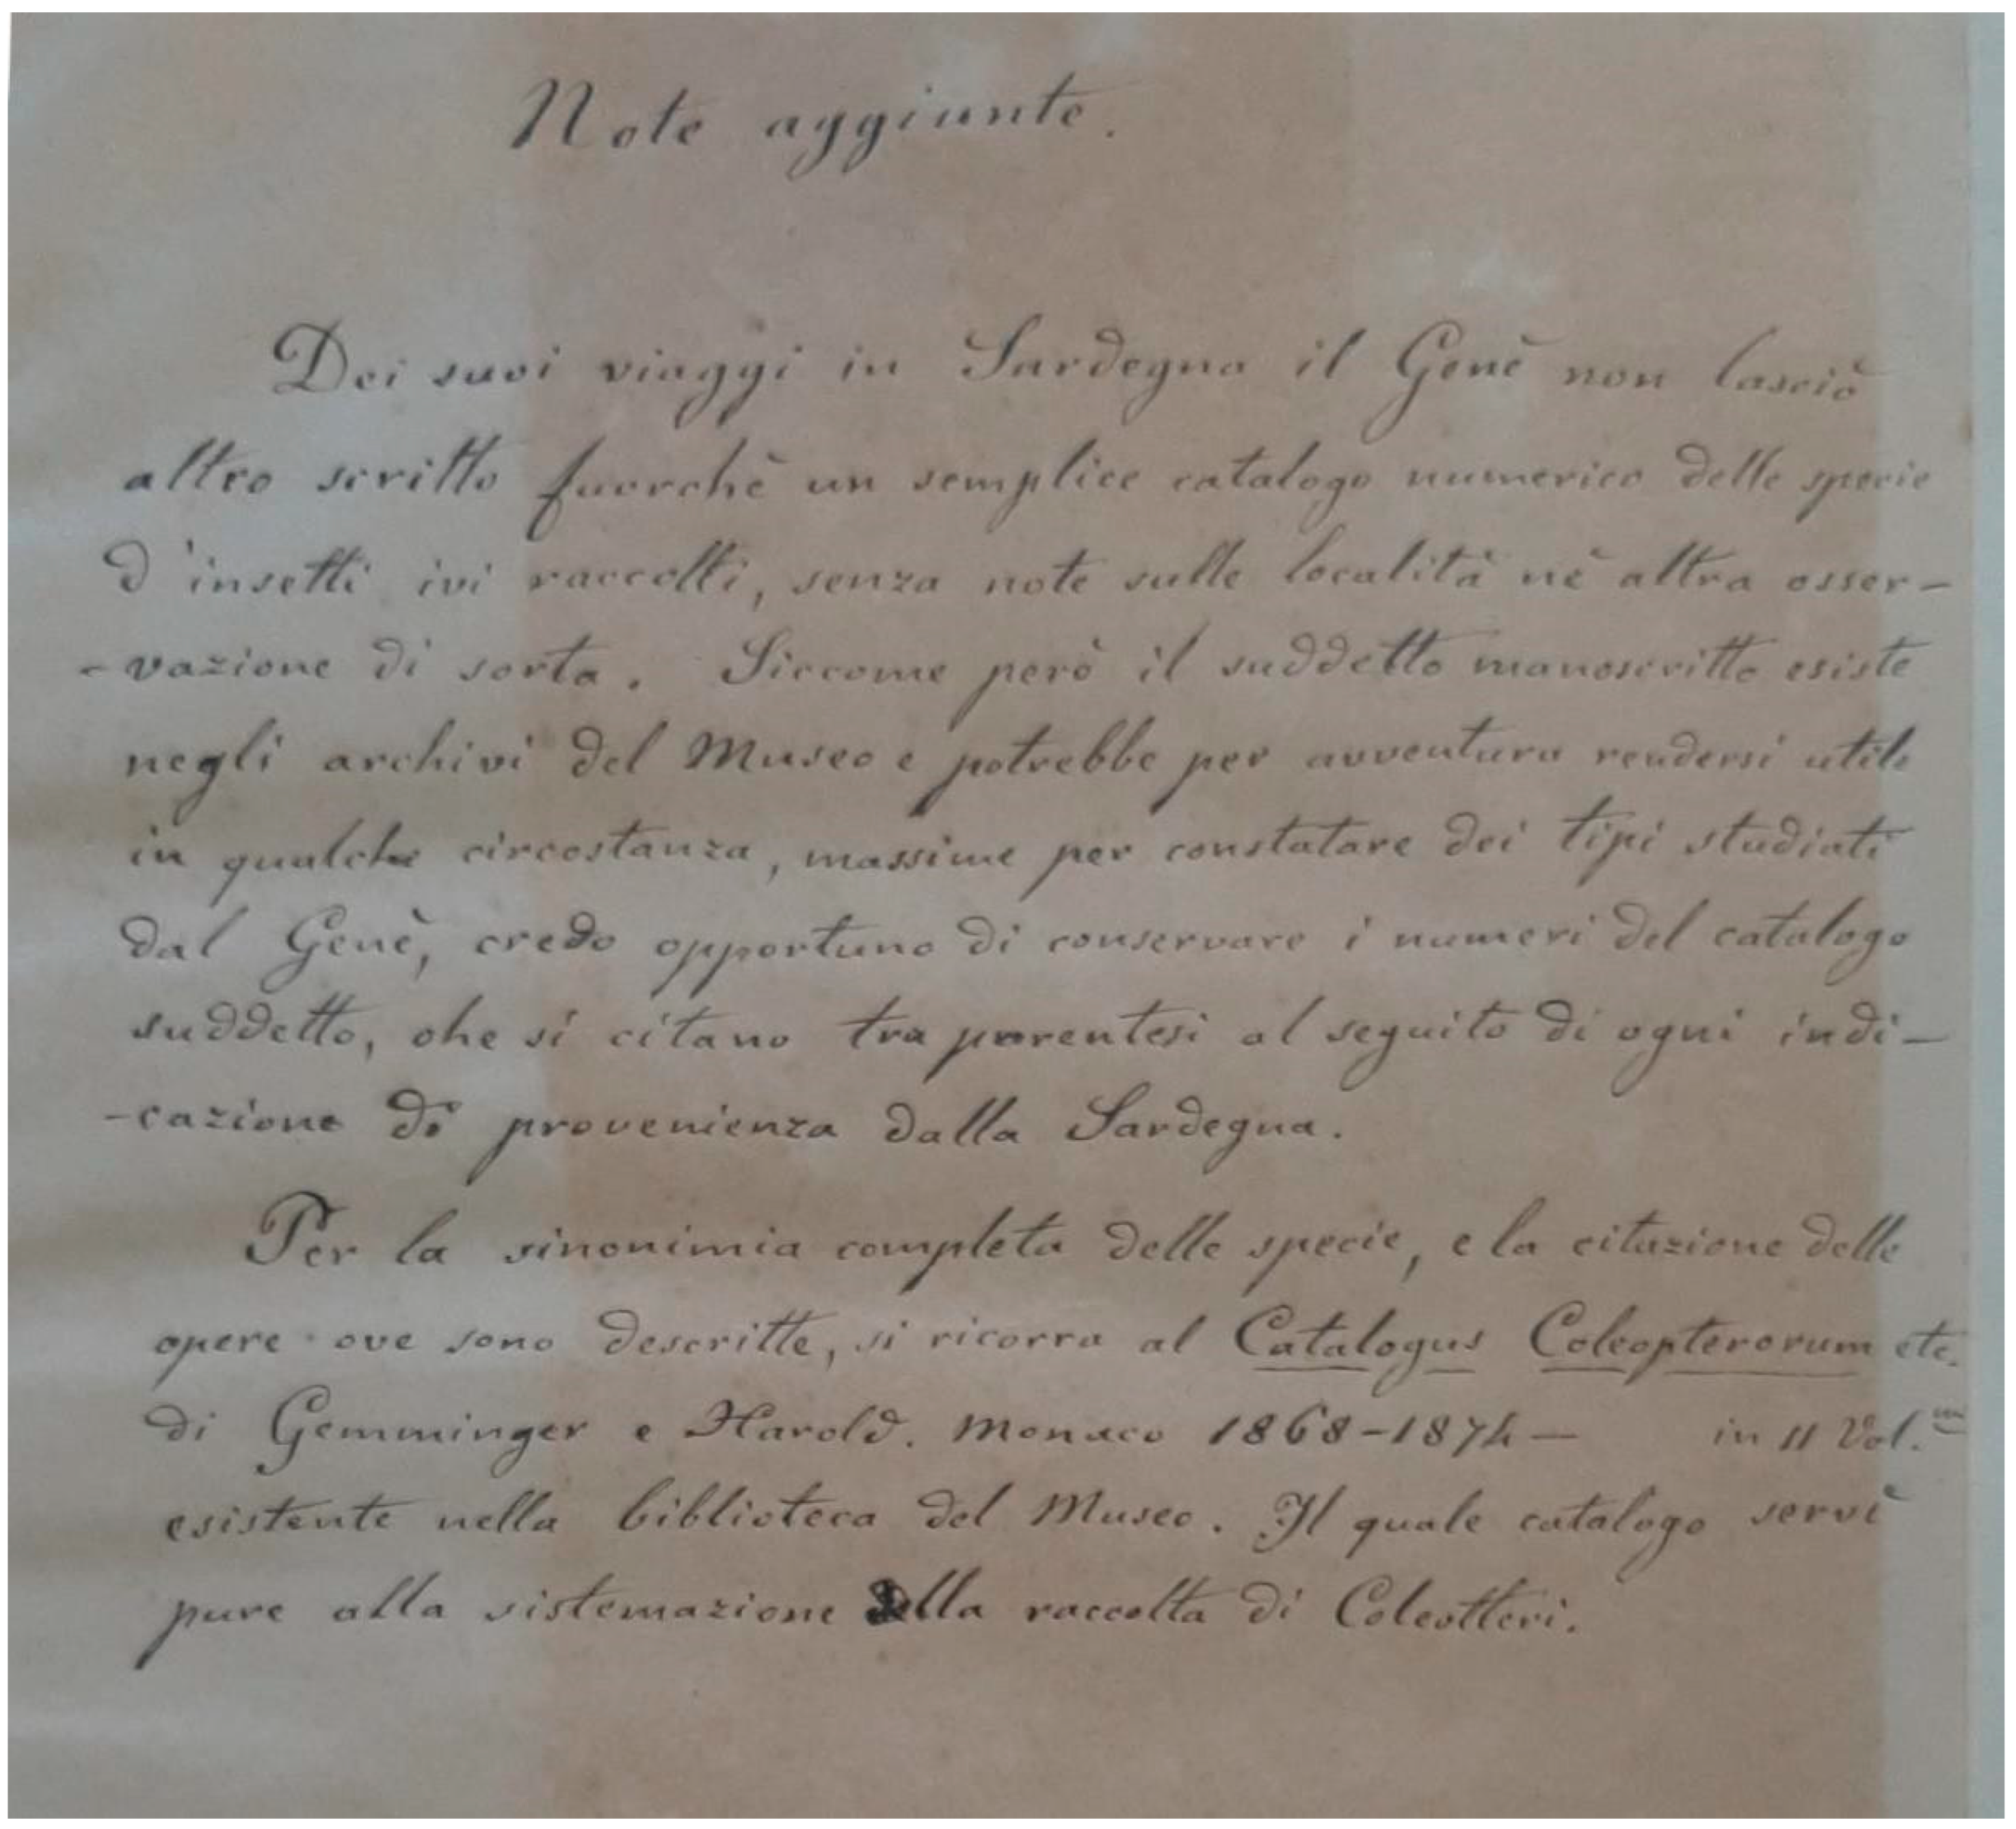 Note aggiunte.
Dei suoi viaggi in Sardegna il Genè non lasciò
altro scritto fuorchè un semplice catalogo numerico delle specie
d'insetti ivi raccolti, senza note sulle località nè altra osser-
-vazione di sorta. Siccome però il suddetto manoscritto esiste
negli archivi del Museo e potrebbe per avventura rendersi utile
in qualche circostanza, massime per constatare dei tipi studiati
dal Genè, credo opportuno di conservare i numeri del catalogo
suddetto, che si citano tra parentesi al seguito di ogni indi-
-cazione di provenienza dalla Sardegna.
Per la sinonimia completa delle specie, e la citazione delle
opere ove sono descritte, si ricorra al Catalogus Coleopterorum etc.
di Gemminger e Harold. Monaco 1868-1874- in 11 Vol.mi
esistente nella biblioteca del Museo. Il quale catalogo servì
pure alla sistemazione della raccolta di Coleotteri.